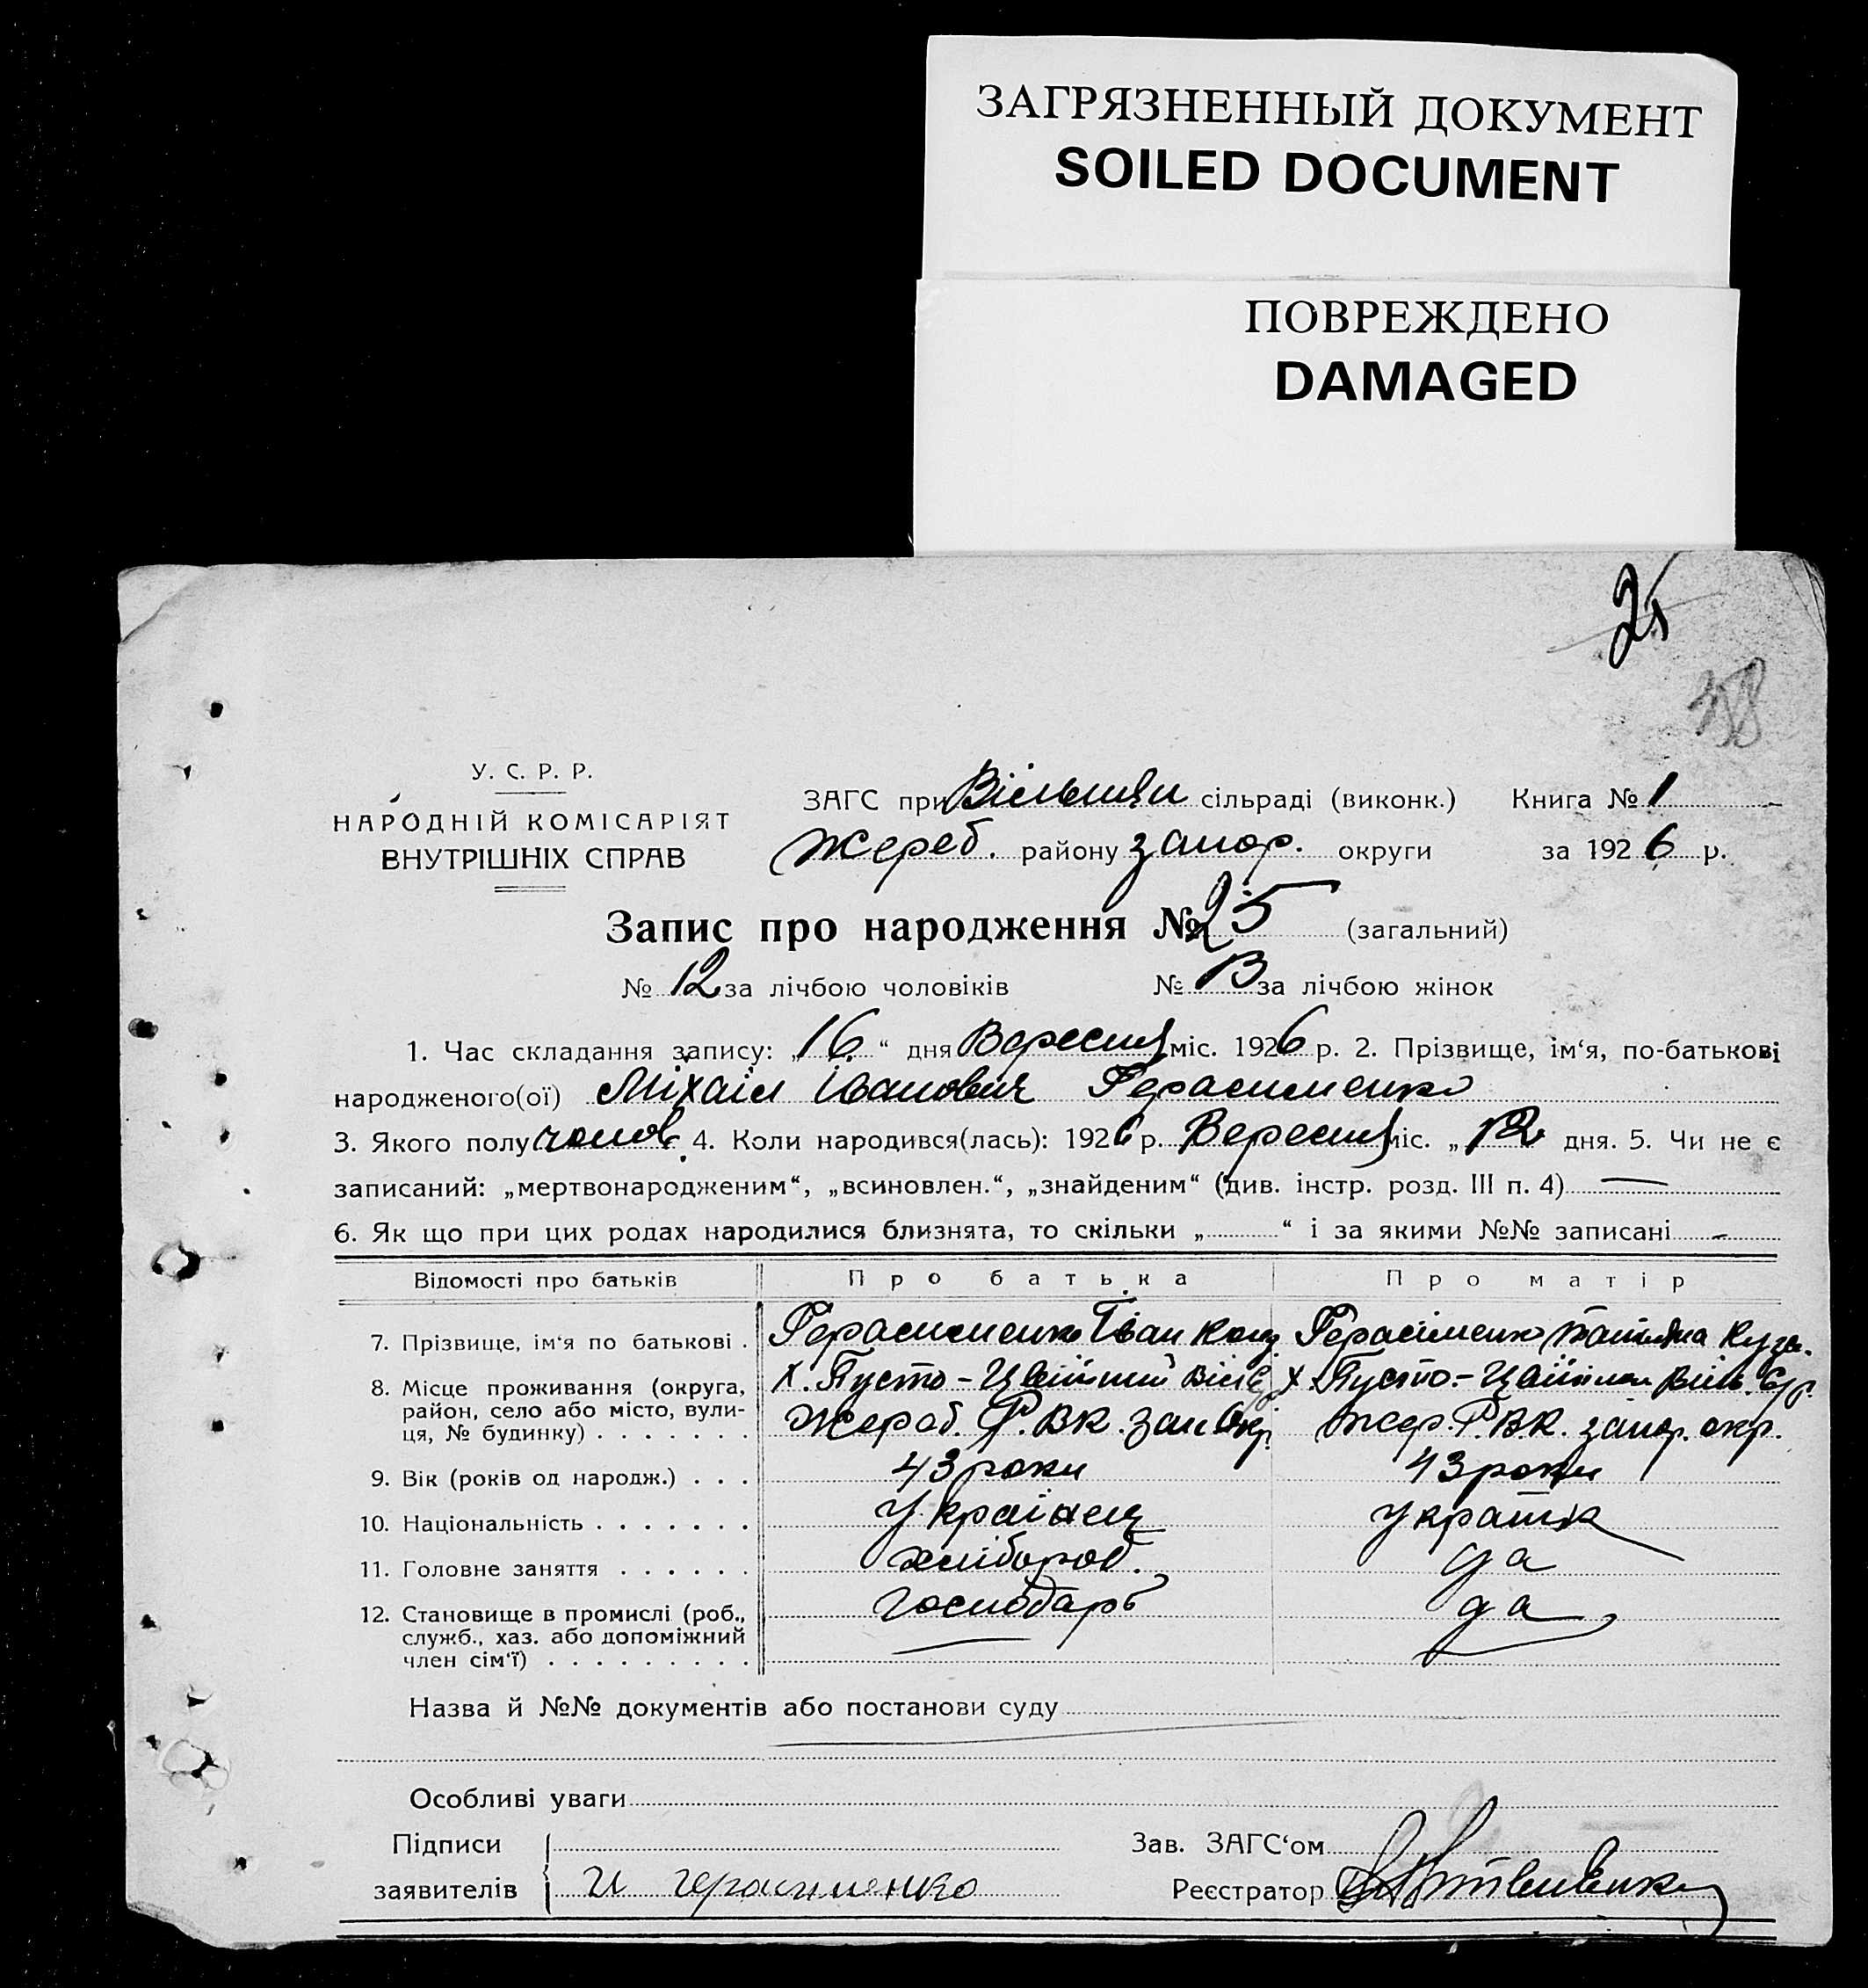 ЗАГРЯЗНЕННЫЙ ДОКУМЕНТ
SOILED DOCUMENT
ПОВРЕЖДЕНО
DAMAGED
25
38
У. С. Р. Р.
НАРОДНІЙ КОМІСАРІЯТ
ВНУТРІШНІХ СПРАВ
ЗАГС при сільраді (виконк.) Книга № 1
Жереб. району запор. округи за 1926 р.
Запис про народження № 25 (загальний)
№ 12 за лічбою чоловіків № 13 за лічбою жінок
1. Час складання запису: „16“ дня Вересня міс. 1926 р. 2. Прізвище, ім‘я, по-батькові
народженого(ої) Міхаіл Іванович Герасименко
3. Якого полу чолов. 4. Коли народився(лась): 1926 р. Вересня міс. „12 дня. 5. Чи не є
записаний: „мертвонародженим“, „всиновлен.“, „знайденим“ (див. інстр. розд. III п. 4) —
6. Як що при цих родах народилися близнята, то скільки „ “ і за якими №№ записані -
Відомості про батьків Про батька Про матір
7. Прізвище, ім‘я по батькові . Герасименко Іван Герасіменко Кузь.
8. Місце проживання (округа, район, село або місто, вулиця, № будинку) . . . . . . . Х. Пусто- Х. Пусто-
Жереб. Р.В.К. зап. окр. Жер. Р.В.К. запор. окр.
9. Вік (років од народж.) . . . 43 роки 43 роки
10. Національність . . . . . . . Українец
11. Головне заняття . . . . . . хлібороб. да
12. Становище в промислі (роб., служб., хаз. або допоміжний член сім‘ї) . . . . . . . . . Господарь да
Назва й №№ документів або постанови суду
Особливі уваги
Підписи Зав. ЗАГС‘ом
заявителів И герасименко Реєстратор